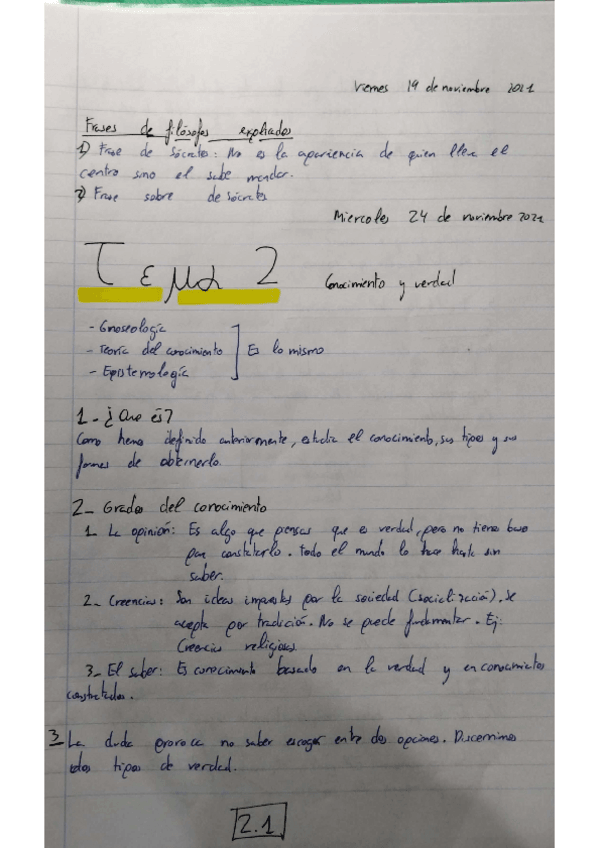 Viernes 19 de noviembre 2021
Frases de filósofos explicadas
1) Frase de Sócrates: No es la apariencia de quien lleva el
centro sino el sabe mandar.
2) Frase sobre de Sócrates
Miercoles 24 de noviembre 2021
Tema 2 Conocimiento y verdad
- Gnoseología
- Teoría del conocimiento Es lo mismo
- Epistemología
1- ¿Que és?
Como hemos definido anteriormente, estudia el conocimiento, sus tipos y sus
formas de obtenerlo.
2- Grados del conocimiento
1- La opinión: Es algo que piensas que es verdad, pero no tienes base
para constatarlo. Todo el mundo lo hace hasta sin
saber.
2- Creencias: Son ideas impuestas por la sociedad (socialización). Se
acepta por tradición. No se puede fundamentar. Ej:
Creencias religiosas
3- El saber: Es conocimiento basado en la verdad y en conocimientos
constatados.
3 La duda provoca no saber escoger entre dos opciones. Discernimos
dos tipos de verdad.
2.1